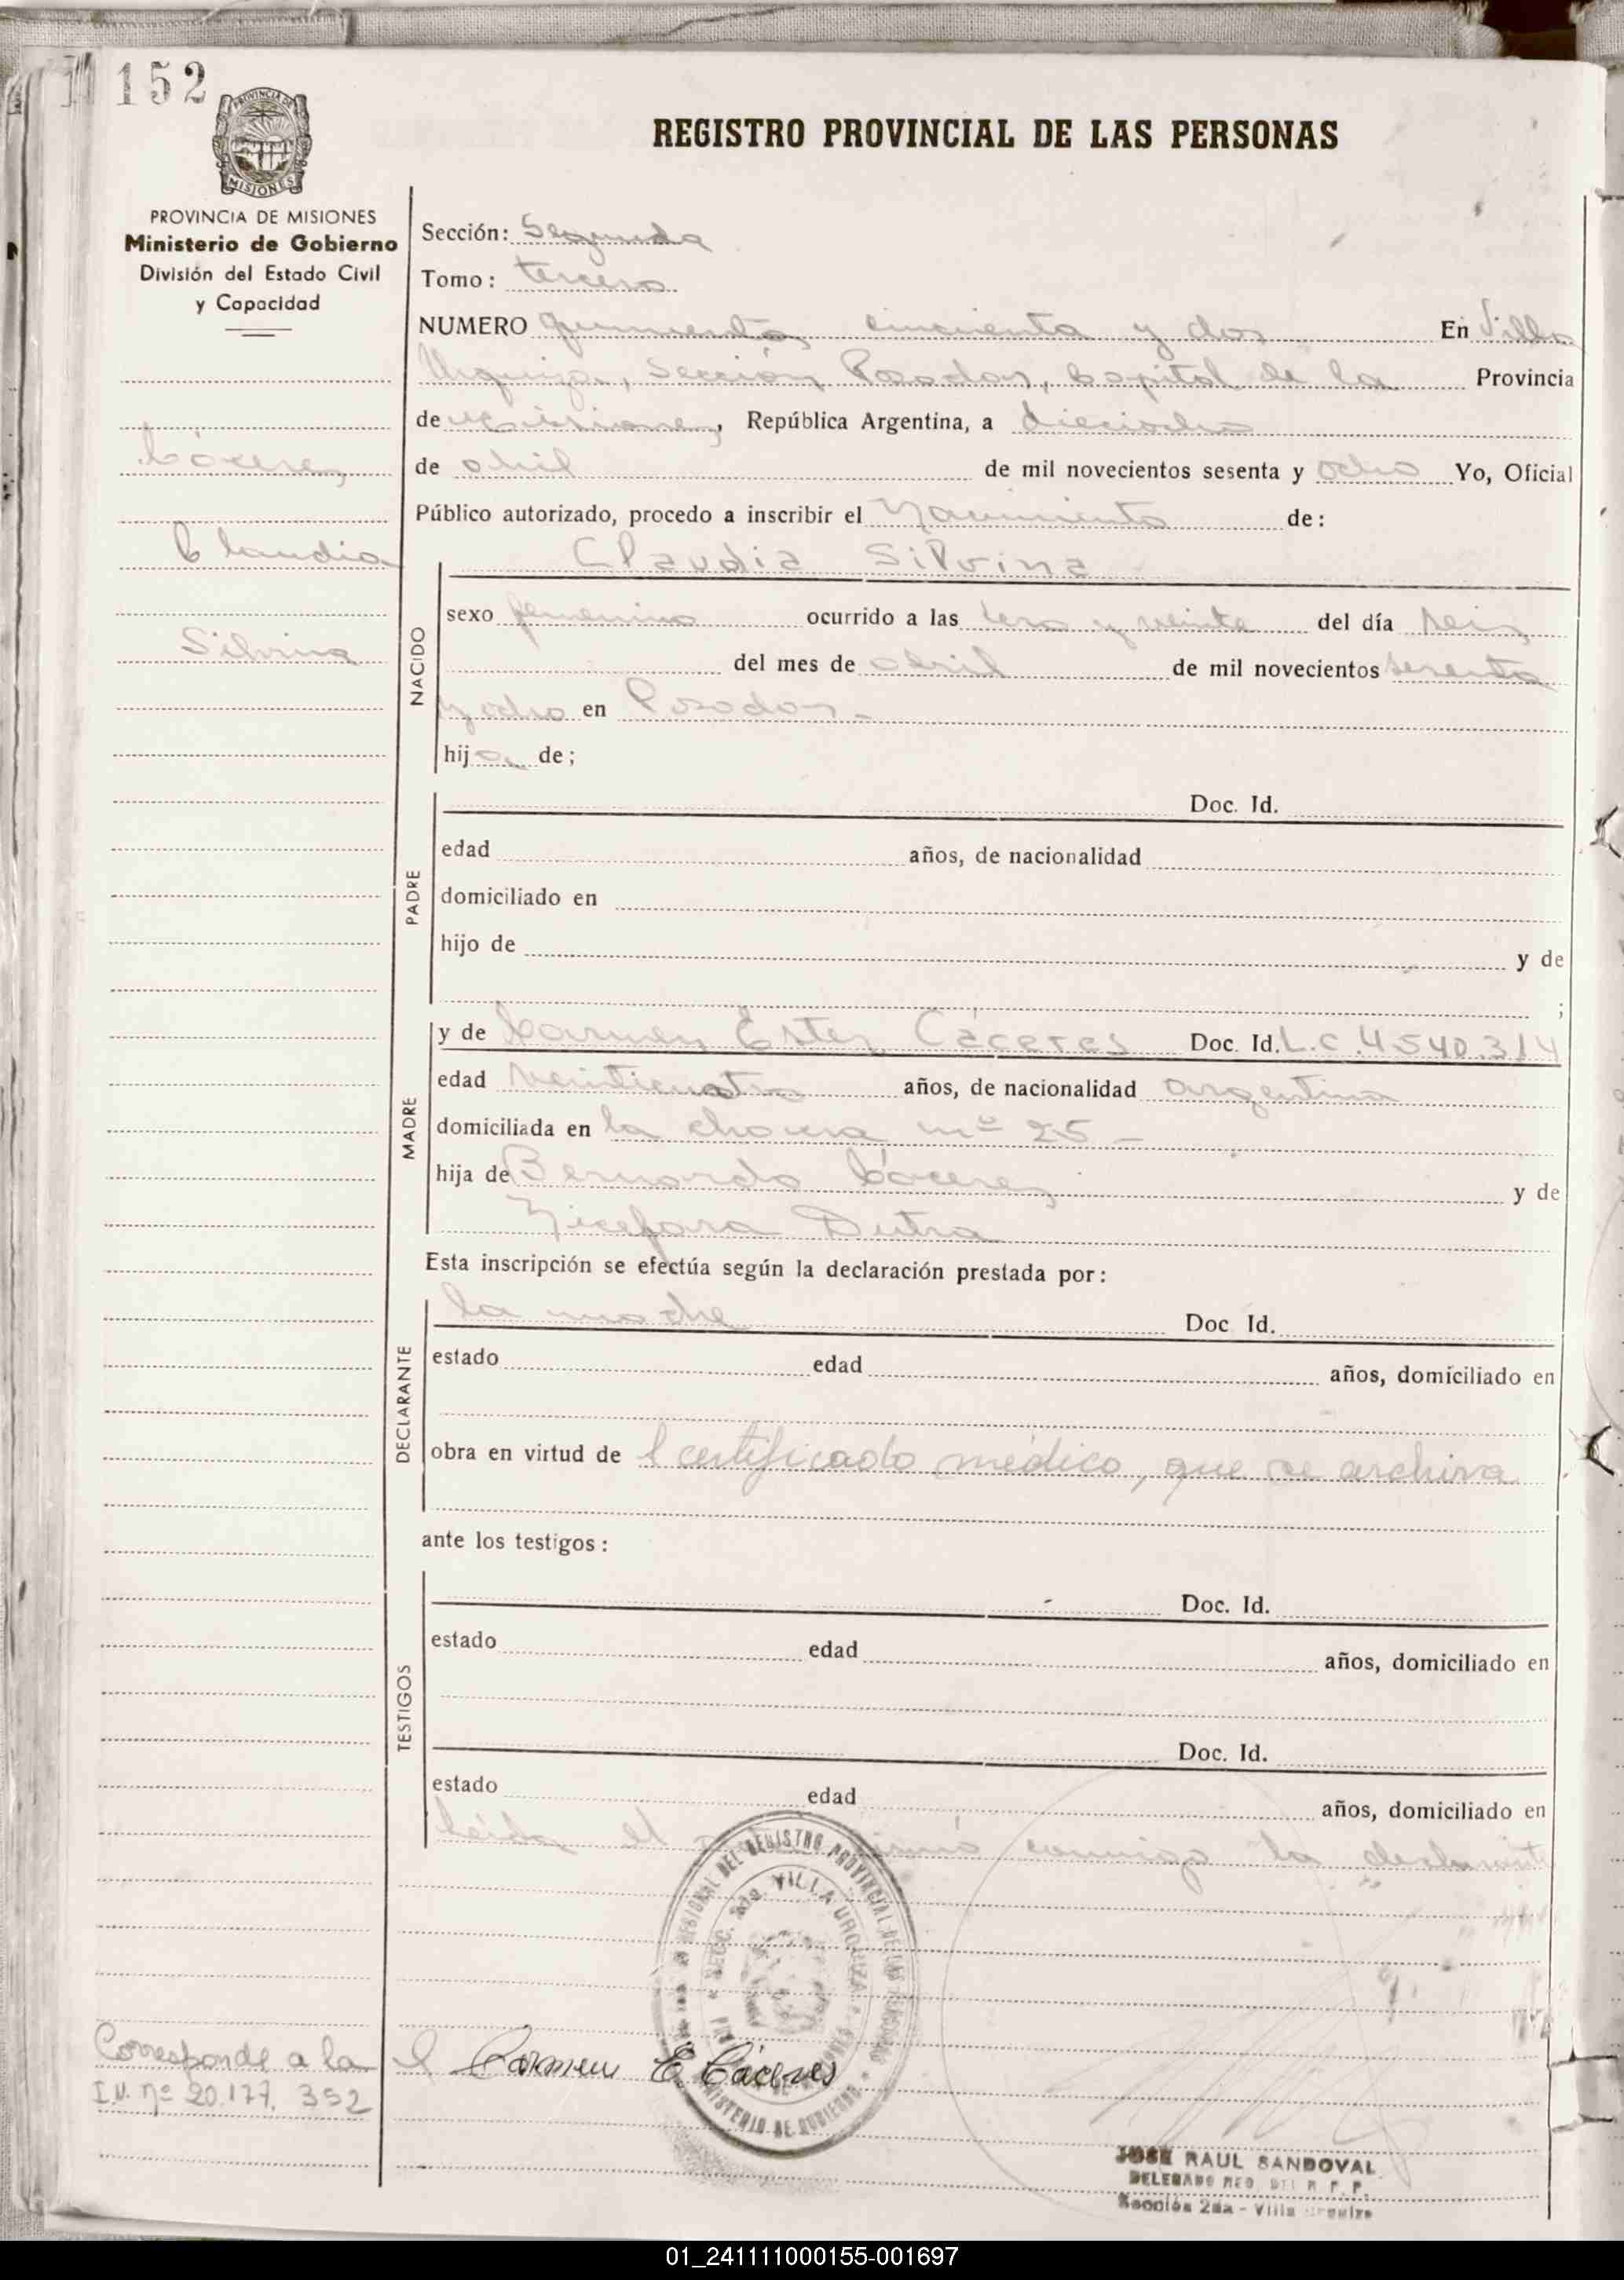 152
PROVINCIA DE
MISIONES
REGISTRO PROVINCIAL DE LAS PERSONAS
PROVINCIA DE MISIONES
Ministerio de Gobierno
División del Estado Civil
y Capacidad
Cáceres
Claudia
Silvina
Sección: Segunda
Tomo: tercero
NUMERO quinientos cincuenta y dos En Villa
Urquiza, Sección Posadas, Capital de la Provincia
de Misiones, República Argentina, a dieciocho
de abril de mil novecientos sesenta y ocho Yo, Oficial
Público autorizado, procedo a inscribir el Nacimiento de:
NACIDO
Claudia Silvina
sexo femenino ocurrido a las cero y veinte del día seis
del mes de abril de mil novecientos sesenta
y ocho en Posadas.-
hija de;
PADRE
Doc. Id.
edad años, de nacionalidad
domiciliado en
hijo de y de
;
MADRE
y de Carmen Ester Cáceres Doc. Id. L.C. 4540.314
edad veinticuatro años, de nacionalidad argentina
domiciliada en la chacra nº 25 -
hija de Bernardo Cáceres y de
Nicefora Dutra
Esta inscripción se efectúa según la declaración prestada por:
DECLARANTE
la madre Doc Id.
estado edad años, domiciliado en
obra en virtud de l certificado médico, que se archiva
ante los testigos:
TESTIGOS
Doc. Id.
estado edad años, domiciliado en
Doc. Id.
estado edad años, domiciliado en
Leída el conmigo la declarante
REGIONAL DEL REGISTRO PROVINCIAL DE LAS PERSONAS
SECC. 2da. VILLA URQUIZA
MINISTERIO DE GOBIERNO
Corresponde a la
I.U. nº 20.177.352
Carmen E. Cáceres
JOSE RAUL SANDOVAL
DELEGADO REG. DEL R. P. P.
Sección 2da - Villa Urquiza
01_241111000155-001697